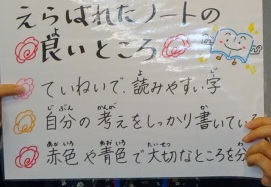 えらばれたノートの
良いところ
ていねいで、読みやすい字
自分の考えをしっかり書いている
赤色や青色で大切なところを分